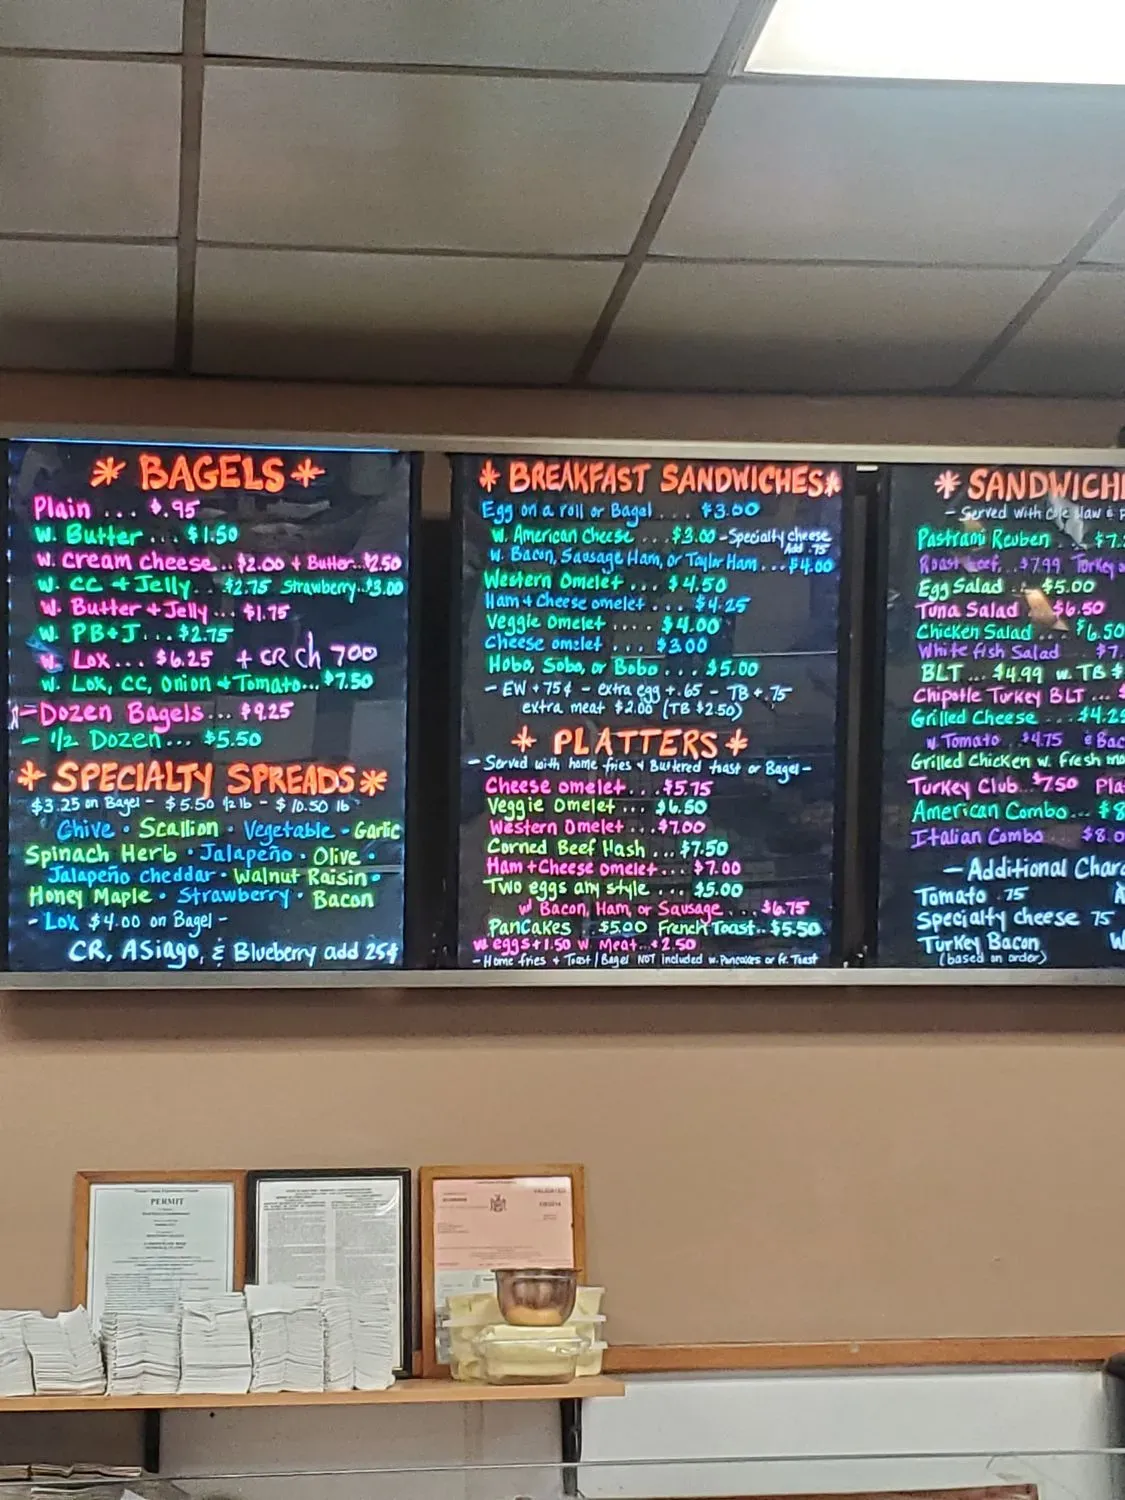 * BAGELS *
Plain ... $.95
w. Butter ... $1.50
w. cream cheese.. $2.00 + Butter..$2.50
w. CC + Jelly... $2.75 Strawberry..$3.00
w. Butter + Jelly... $1.75
w. PB+J... $2.75
w. Lox... $6.25 + CR Ch 700
w. Lox, CC, Onion + Tomato... $7.50
- Dozen Bagels... $9.25
- 1/2 Dozen... $5.50
* SPECIALTY SPREADS *
$3.25 on Bagel - $5.50 1/2 lb - $10.50 lb
Chive • Scallion • Vegetable - Garlic
Spinach Herb • Jalapeño • Olive •
Jalapeño cheddar • Walnut Raisin -
Honey Maple • Strawberry • Bacon
- Lox $4.00 on Bagel -
CR, ASiago, & Blueberry add 25¢
* BREAKFAST SANDWICHES *
Egg on a roll or Bagel... $3.00
w. American Cheese... $3.00 - Specialty cheese
Add .75
w. Bacon, Sausage Ham, or Taylor Ham... $4.00
Western Omelet... $4.50
Ham + Cheese omelet... $4.25
Veggie Omelet .... $4.00
Cheese omelet ... $3.00
Hobo, Sobo, or Bobo... $5.00
- EW + 75¢ - extra egg +.65 - TB +.75
extra meat $2.00 (TB $2.50)
* PLATTERS *
- Served with home fries & Buttered toast or Bagel -
Cheese omelet... $5.75
Veggie Omelet... $6.50
Western Omelet... $7.00
Corned Beef Hash... $7.50
Ham + Cheese omelet... $7.00
Two eggs any style... $5.00
w/ Bacon, Ham, or Sausage... $6.75
PanCakes .. $5.00 French Toast.. $5.50
w. eggs + 1.50 w. Meat..+ 2.50
- Home fries + Toast / Bagel NOT included w. Pancakes or fr. Toast
* SANDWICH
- Served with Cole slaw &
Pastrami Reuben ... $7.
Roast Beef... $7.99 Turkey
Egg Salad ... $5.00
Tuna Salad $6.50
Chicken Salad ... $6.50
White fish Salad $7.
BLT... $4.99 w. TB $
Chipotle Turkey BLT... $
Grilled Cheese... $4.25
w. Tomato .. $4.75 & Bac
Grilled Chicken w. Fresh mo
Turkey Club.. $7.50 Pla
American Combo... $8
Italian Combo ... $8.0
- Additional Char
Tomato .75
Specialty cheese 75
Turkey Bacon
(based on order)
PERMIT